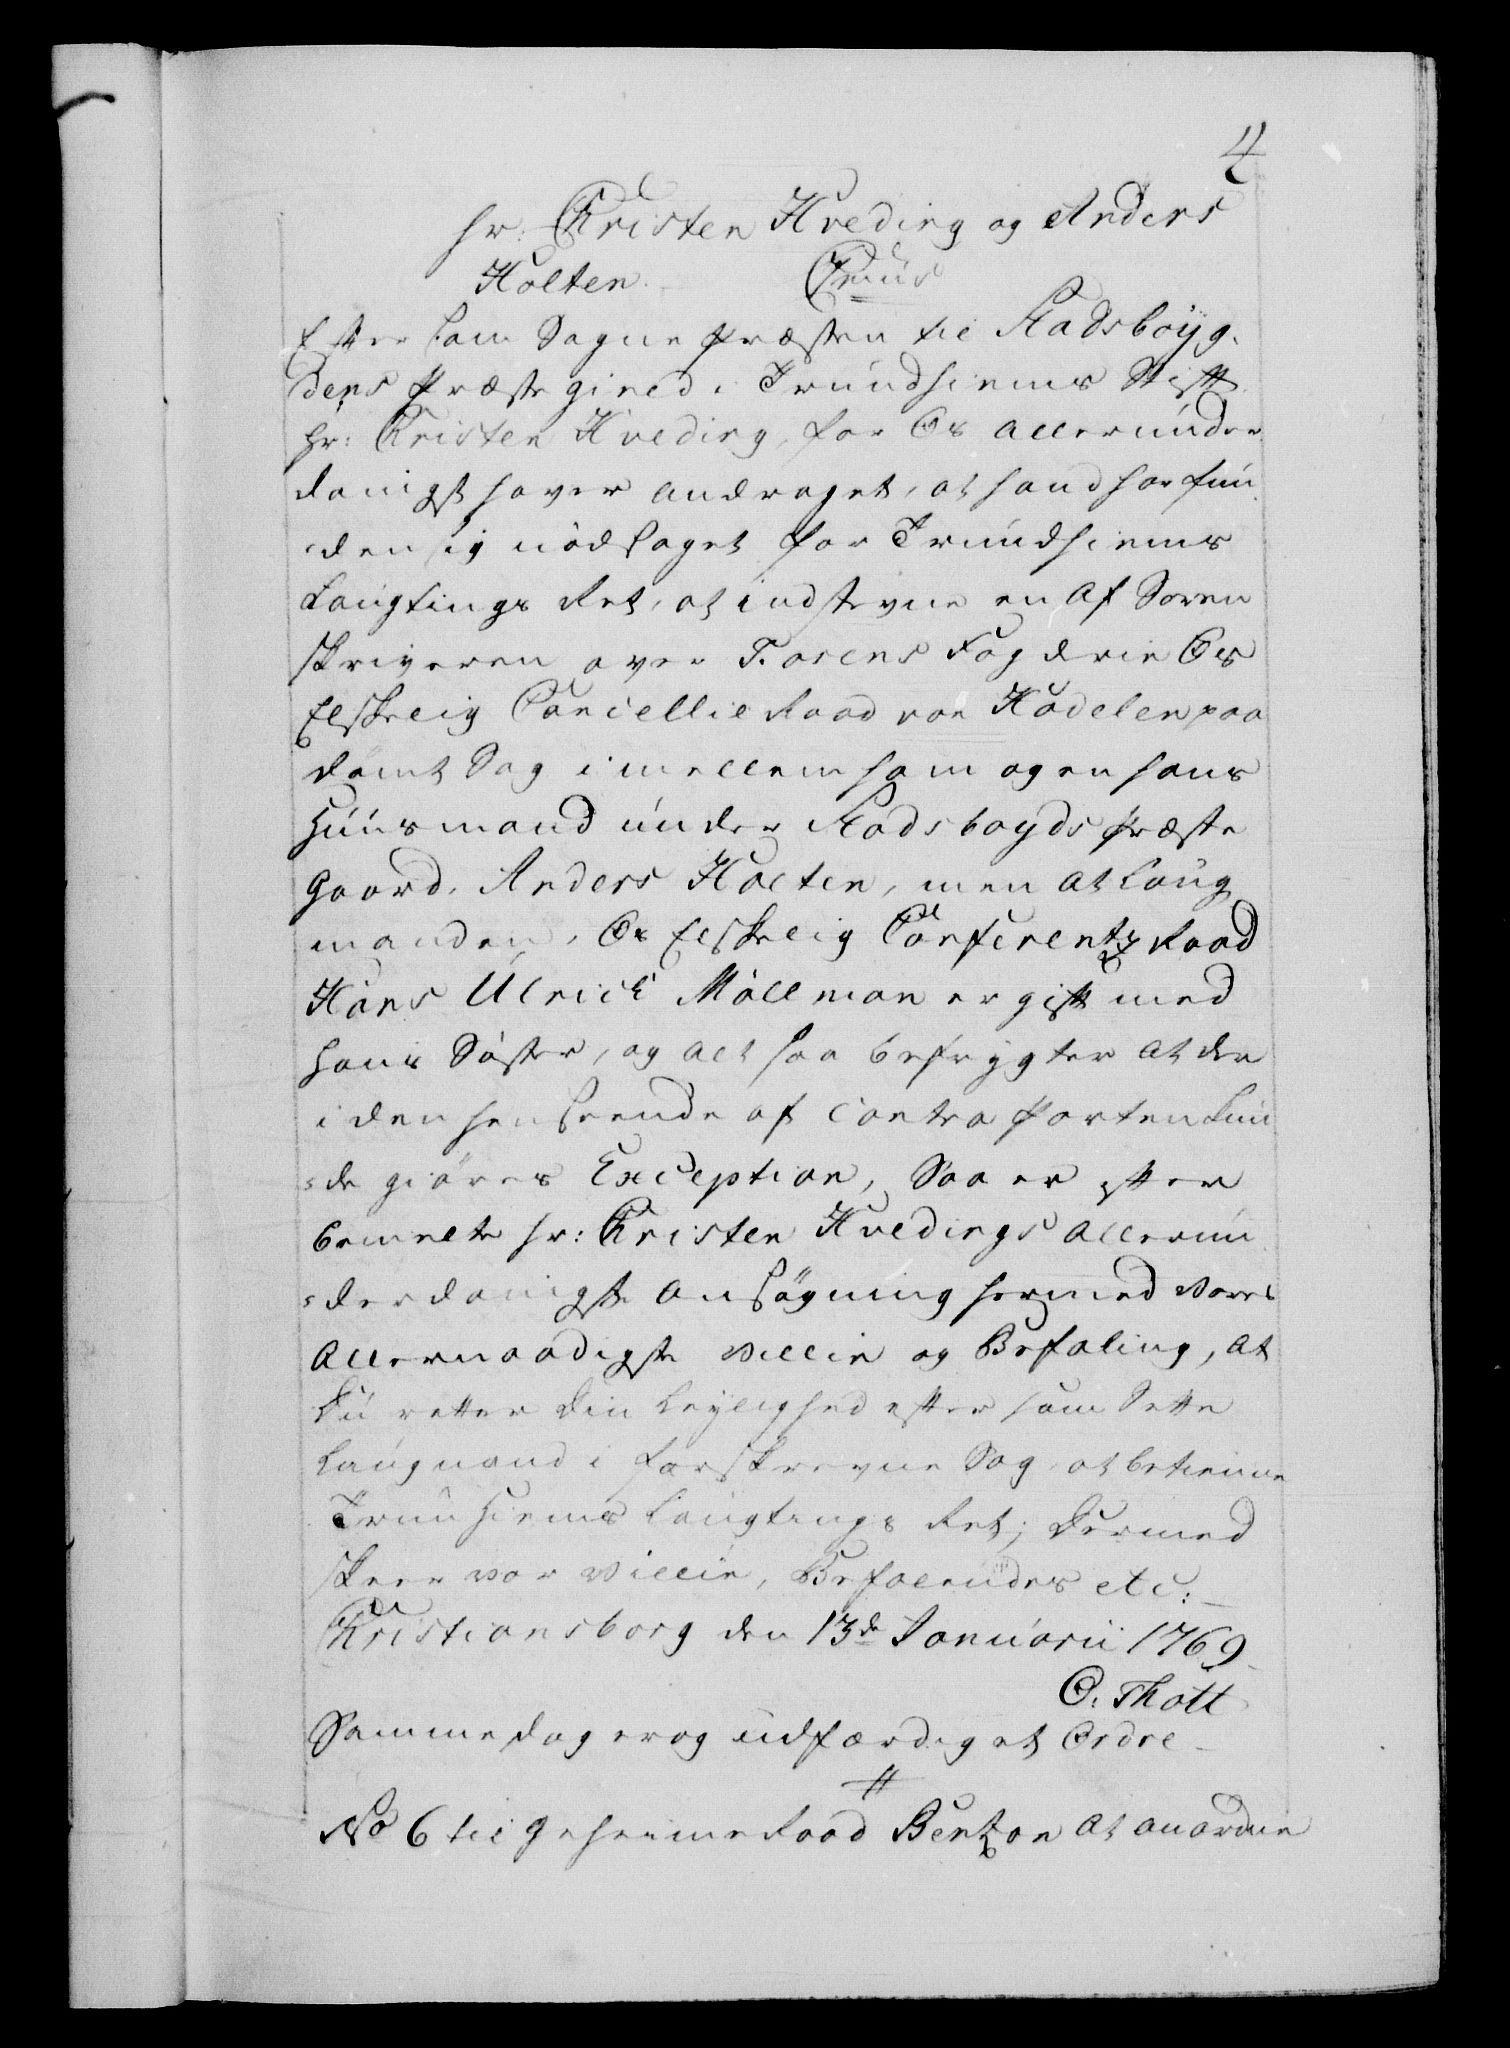 4
Hr: Christen Hveding og Anders
Holten. C7mus
Efter som Sogne Præsten til Stadsboÿg,
dens Præstegield i Trundhiems Stift
Hr: Christen Hveding, for Os allerunder
danigst haver andraget, at hand har fun
den sig nødsaget for Trundhiems
Laugtings Ret, at indstevne en af Soren
skriveren over Fosens Fogderie Os
Elskelig Cancellie Raad von Hadelen paa
dømt Sag imellem ham og en hans
Huusmand under Stadsboyds Præste
Gaard, Anders Holten, men at Laug
manden, Os Elskelig Conferentz Raad
Hans Ulrich Möllman er gift med
hans Søster, og alt saa befrygter at der
i den henseende af Contra Parten kun
de giøres Exception, Saa er efter
bemelte Hr: Christen Hvedings allerun
derdanigste ansøgning hermed Vores
allernaadigste Villie og Befaling, at
Du retter din Leylighed efter som Sette
Laugmand i forskrevne Sag at betienne
Trunhiems Laugtings Ret; Dermed
skeer vor Villie, Befalendes etc:
Christiansborg den 13de Januarii 1769
O. Thott
Samme dag er og udfærdiget Ordre
No 6 til Geheime Raad Bentzon at anordne